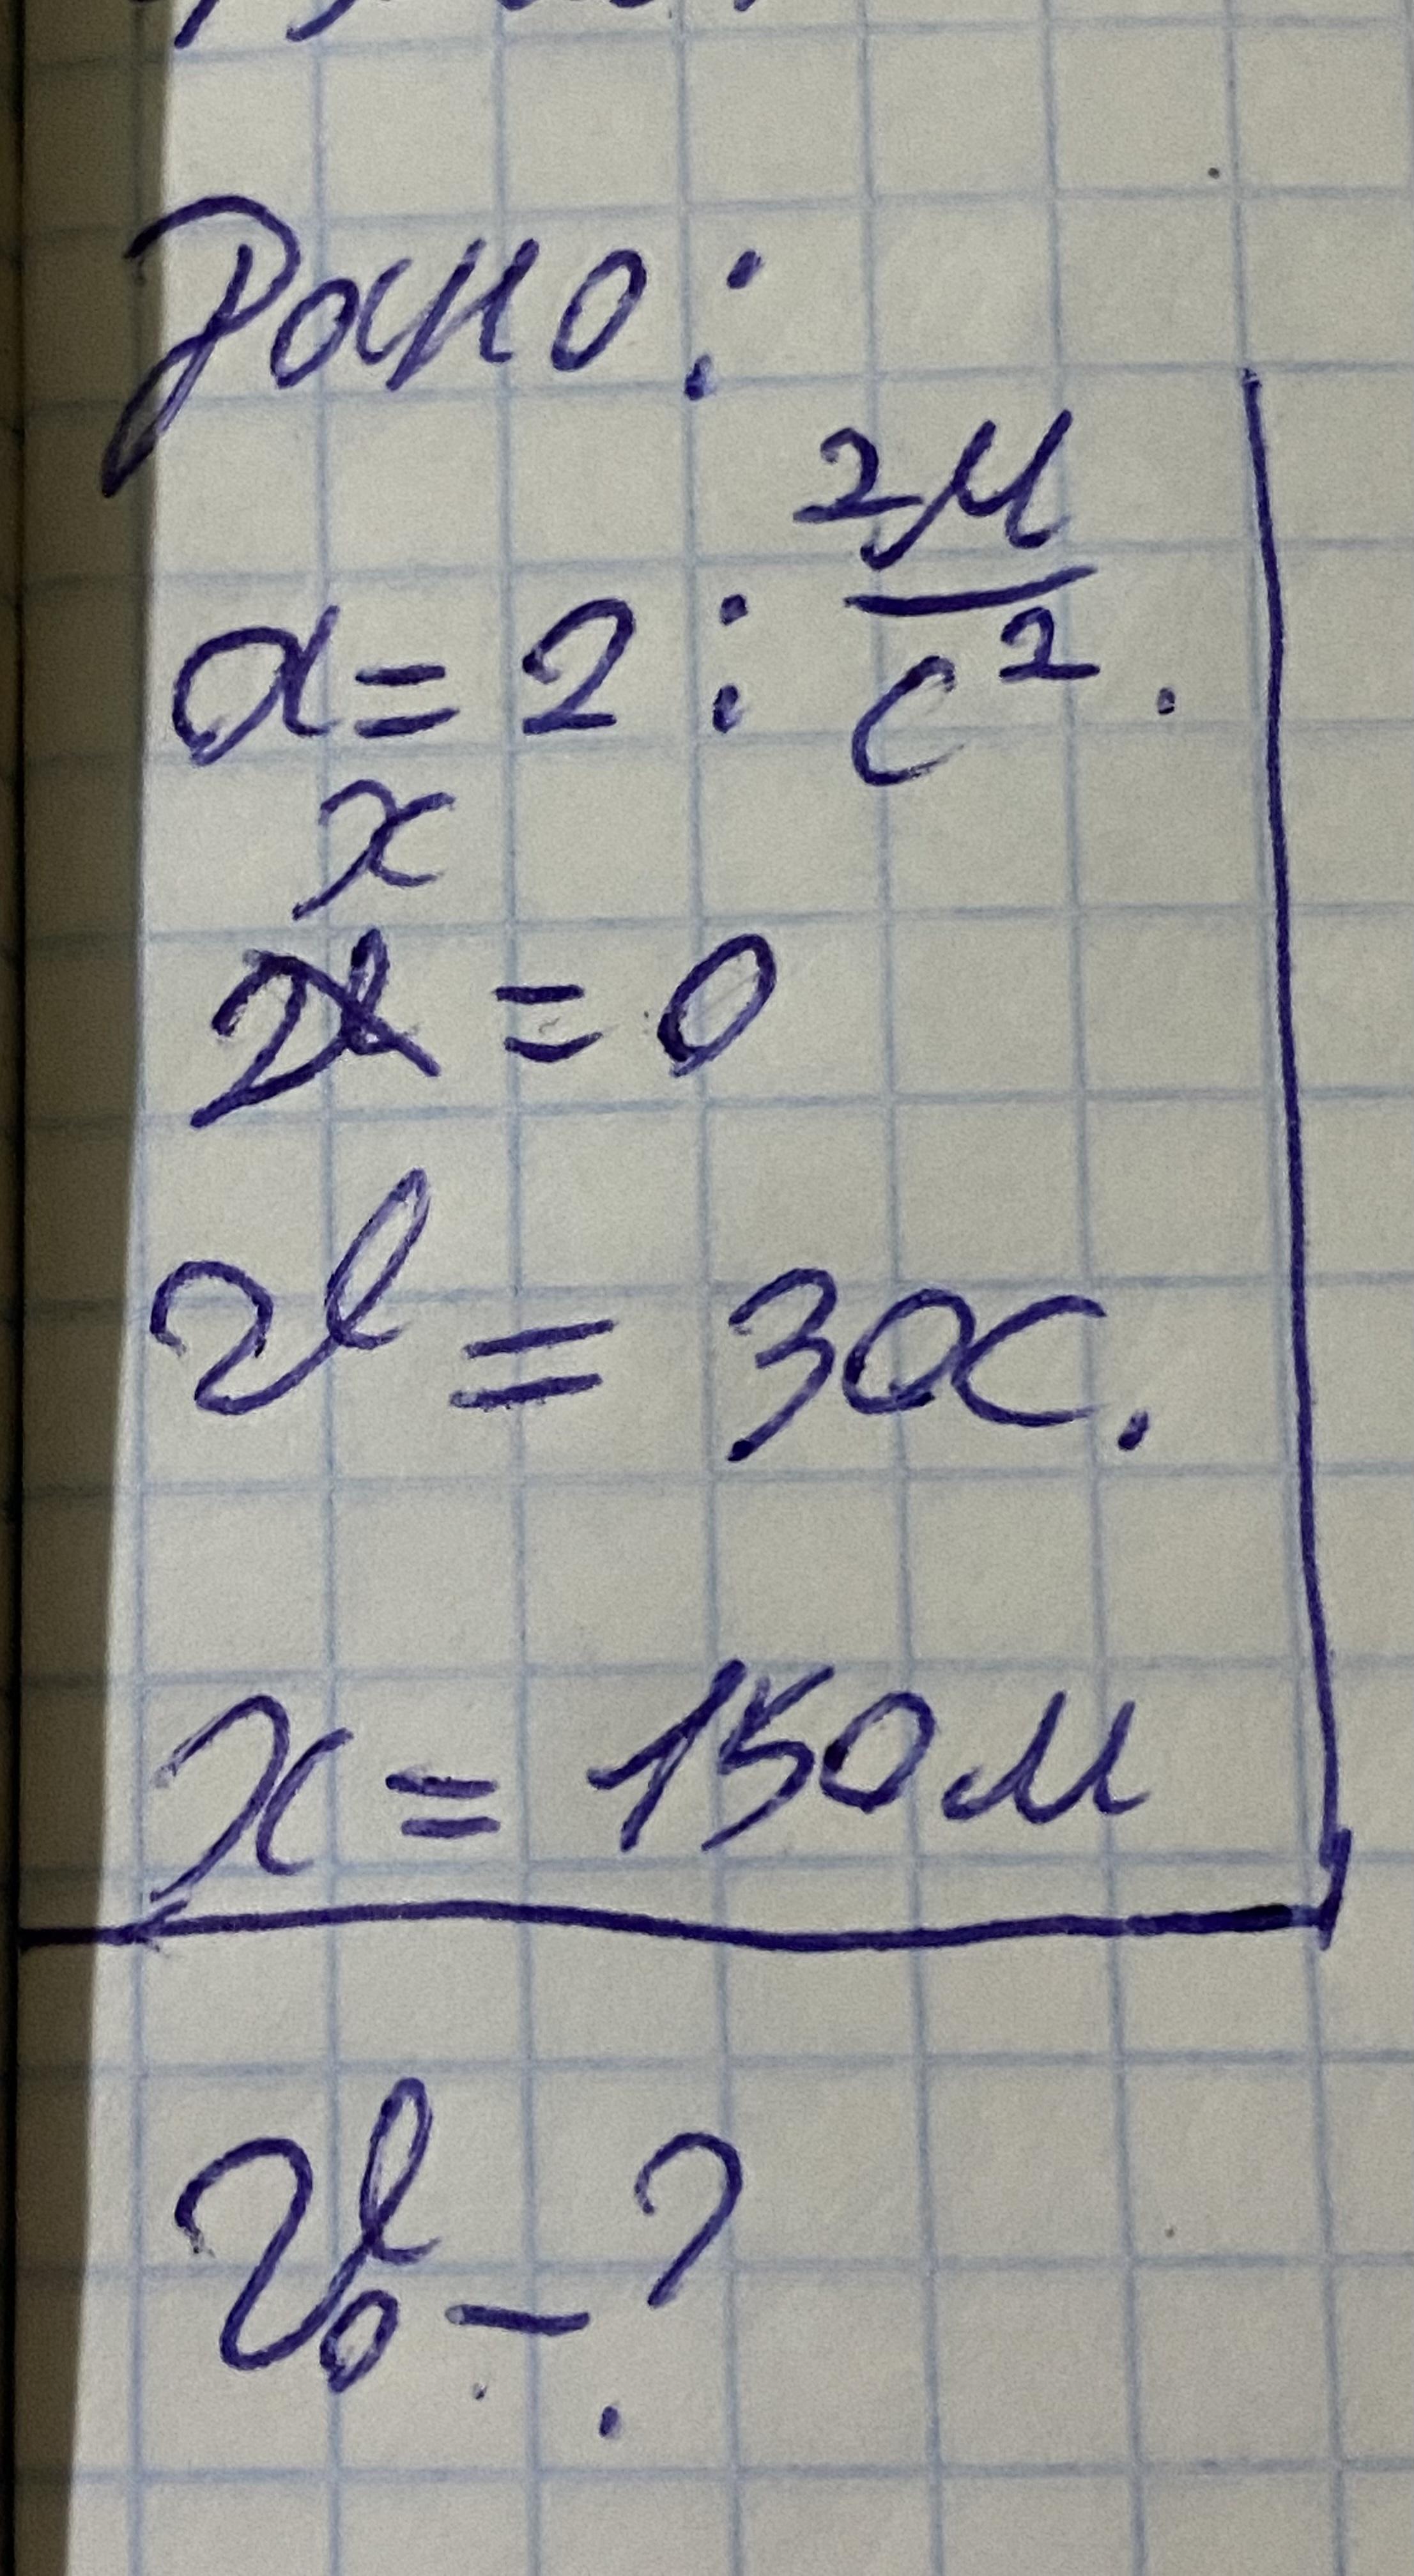 Дано:
a = 2 : 2м/с².
x
x = 0
v = 30с.
x = 150м
v₀ – ?